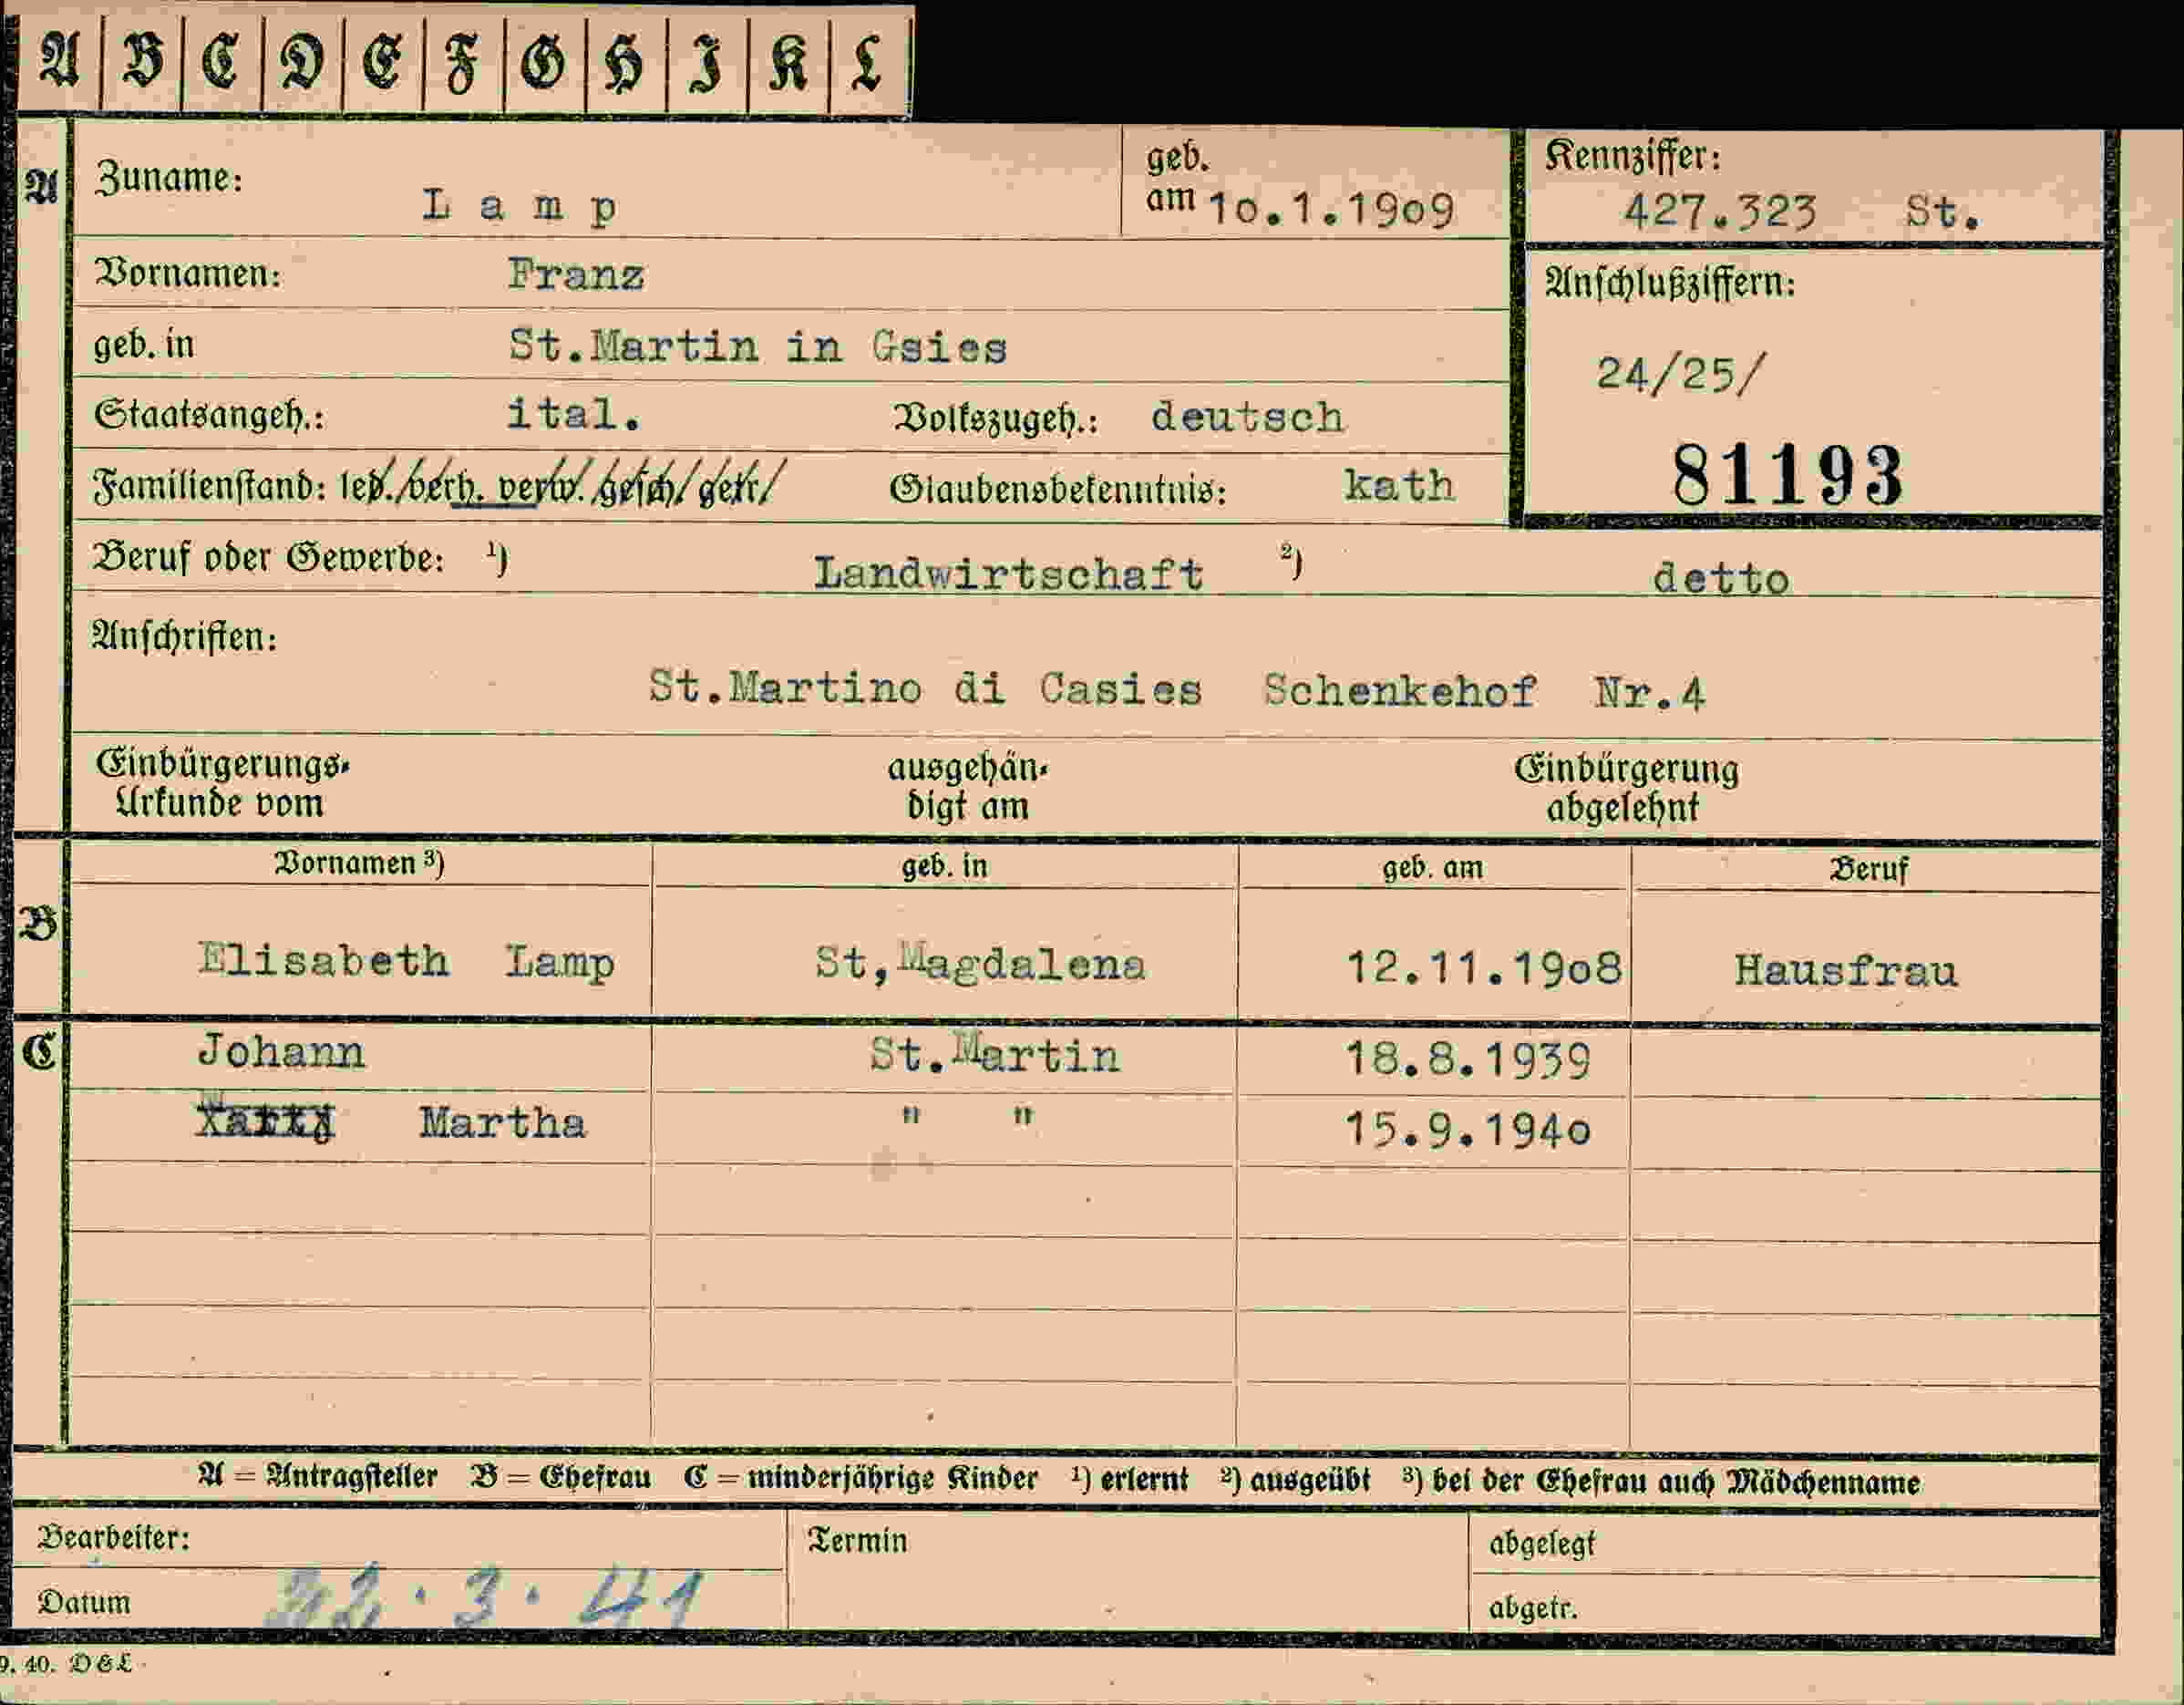 A B C D E F G H I K L
A Zuname: Lamp geb. am 10.1.1909 Kennziffer: 427.323 St.
Vornamen: Franz
Anschlußziffern:
geb. in St.Martin in Gsies
24/25/
Staatsangeh.: ital. Volkszugeh.: deutsch
81193
Familienstand: led./verh. verw./gesch/getr/ Glaubensbekenntnis: kath
Beruf oder Gewerbe: ¹) Landwirtschaft ²) detto
Anschriften:
St.Martino di Casies Schenkehof Nr.4
Einbürgerungs- ausgehän- Einbürgerung
Urkunde vom digt am abgelehnt
Vornamen ³) geb. in geb. am Beruf
B
Elisabeth Lamp St,Magdalena 12.11.1908 Hausfrau
C Johann St.Martin 18.8.1939
Martha " " 15.9.1940
A = Antragsteller B = Ehefrau C = minderjährige Kinder ¹) erlernt ²) ausgeübt ³) bei der Ehefrau auch Mädchenname
Bearbeiter: Termin abgelegt
Datum 22.3.41 abgetr.
9. 40. D&L